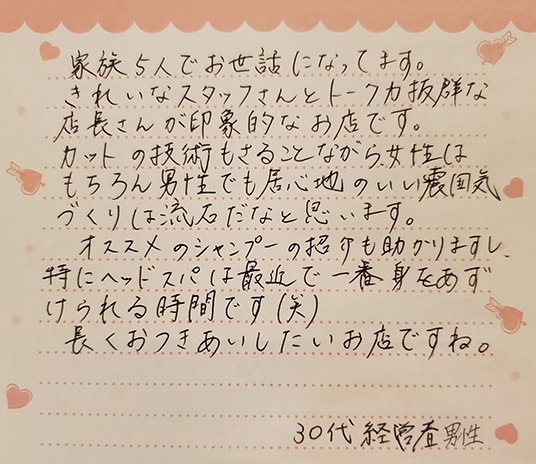 家族5人でお世話になってます。
きれいなスタッフさんとトーク力抜群な
店長さんが印象的なお店です。
カットの技術もさることながら、女性は
もちろん男性でも居心地のいい雰囲気
づくりは流石だなと思います。
オススメのシャンプーの紹介も助かりますし、
特にヘッドスパは最近で一番身をあず
けられる時間です(笑)
長くおつきあいしたいお店ですね。
30代 経営者 男性